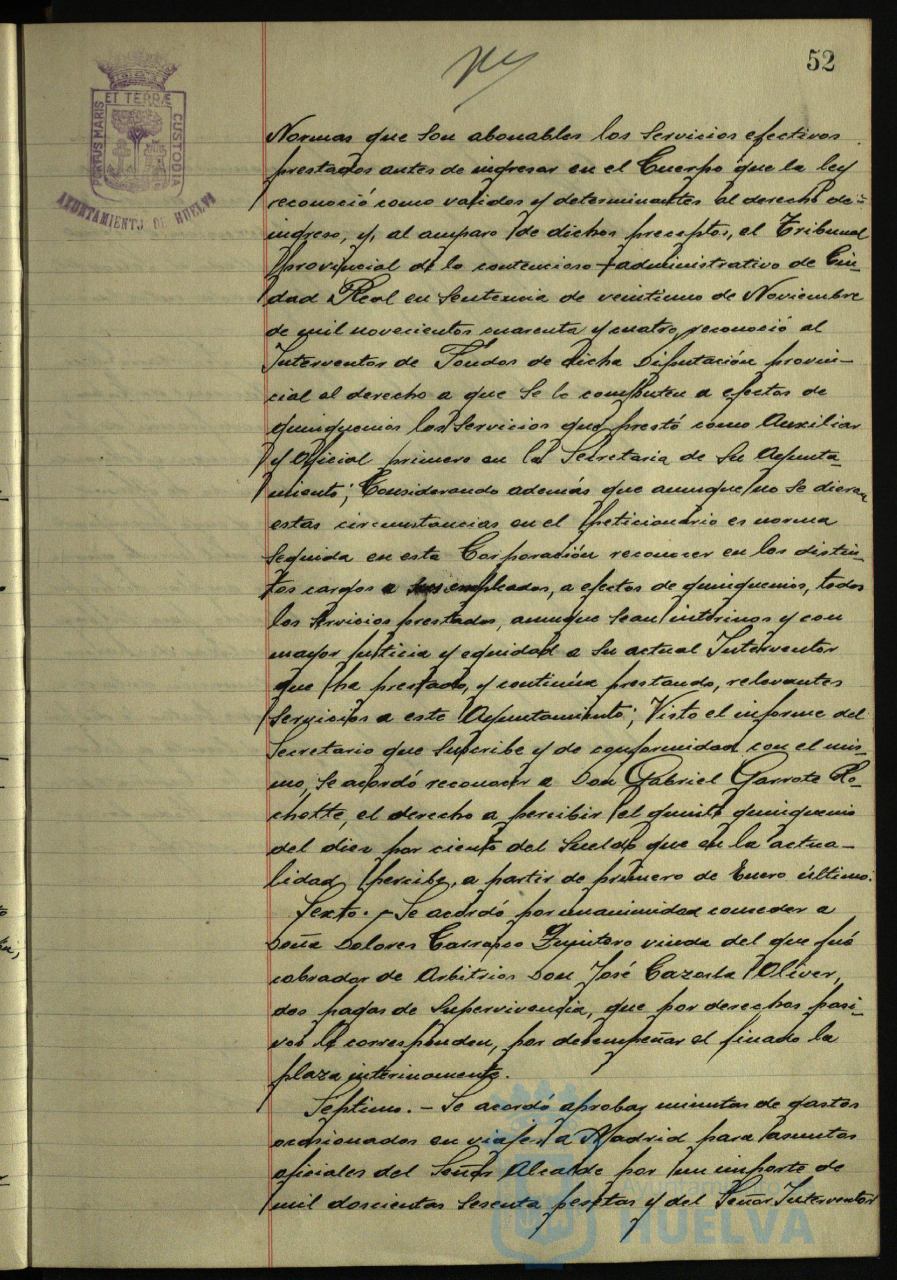 52
PORTUS MARIS ET TERRÆ CUSTODIA
AYUNTAMIENTO DE HUELVA
Normas que son abonables los servicios efectivos
prestados antes de ingresar en el Cuerpo que la ley
reconoció como validos y determinantes al derecho de
ingreso, y, al amparo de dichos preceptos, el Tribunal
provincial de lo contencioso-administrativo de Ciu-
dad Real en Sentencia de veintiuno de Noviembre
de mil novecientos cuarenta y cuatro, reconoció al
Interventor de Fondos de dicha Diputación provin-
cial al derecho a que se le computen a efectos de
quinquenios los servicios que prestó como Auxiliar
y Oficial primero en la Secretaria de su Ayunta-
miento; Considerando además que aunque no se dieran
estas circunstancias en el peticionario es norma
seguida en esta Corporación reconocer en los distin-
tos cargos a sus empleados, a efectos de quinquenios, todos
los servicios prestados, aunque sean interinos y con
mayor justicia y equidad a su actual Interventor
que ha prestado, y continúa prestando, relevantes
servicios a este Ayuntamiento; Visto el informe del
Secretario que suscribe y de conformidad con el mis-
mo, se acordó reconocer a Don Gabriel Garrote Ro-
chette, el derecho a percibir el quinto quinquenio
del diez por ciento del sueldo que en la actua-
lidad percibe, a partir de primero de Enero último.
Sexto.- Se acordó por unanimidad conceder a
Doña Dolores Carrasco Quintero viuda del que fué
cobrador de Arbitrios Don José Cazorla Oliver,
dos pagas de supervivencia, que por derechos pasi-
vos le corresponden, por desempeñar el finado la
plaza interinamente.
Séptimo.- Se acordó aprobar minutas de gastos
ocasionados en viajes a Madrid para asuntos
oficiales del Señor Alcalde por un importe de
mil doscientas sesenta pesetas y del Señor Interventor
Ayuntamiento de
HUELVA